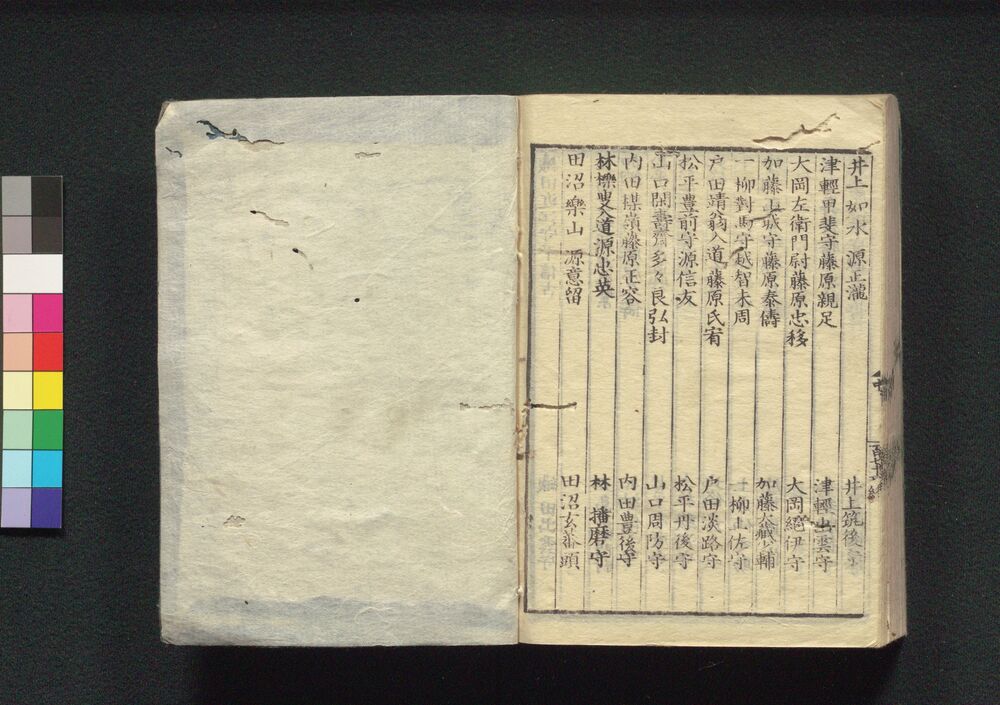 井上如水 源正瀧 井上筑後守
津輕甲斐守藤原親足 津輕出雲守
大岡左衛門尉藤原忠移 大岡紀伊守
加藤山城守藤原泰儔 加藤大藏少輔
一柳對馬守越智末周 一柳土佐守
戸田靖翁入道藤原氏宥 戸田淡路守
松平豊前守源信友 松平丹後守
山口閑齋多々良弘封 山口周防守
内田楳嶺藤原正容 内田豊後守
林櫟叟入道源忠英 林播磨守
田沼樂山 源意留 田沼玄蕃頭